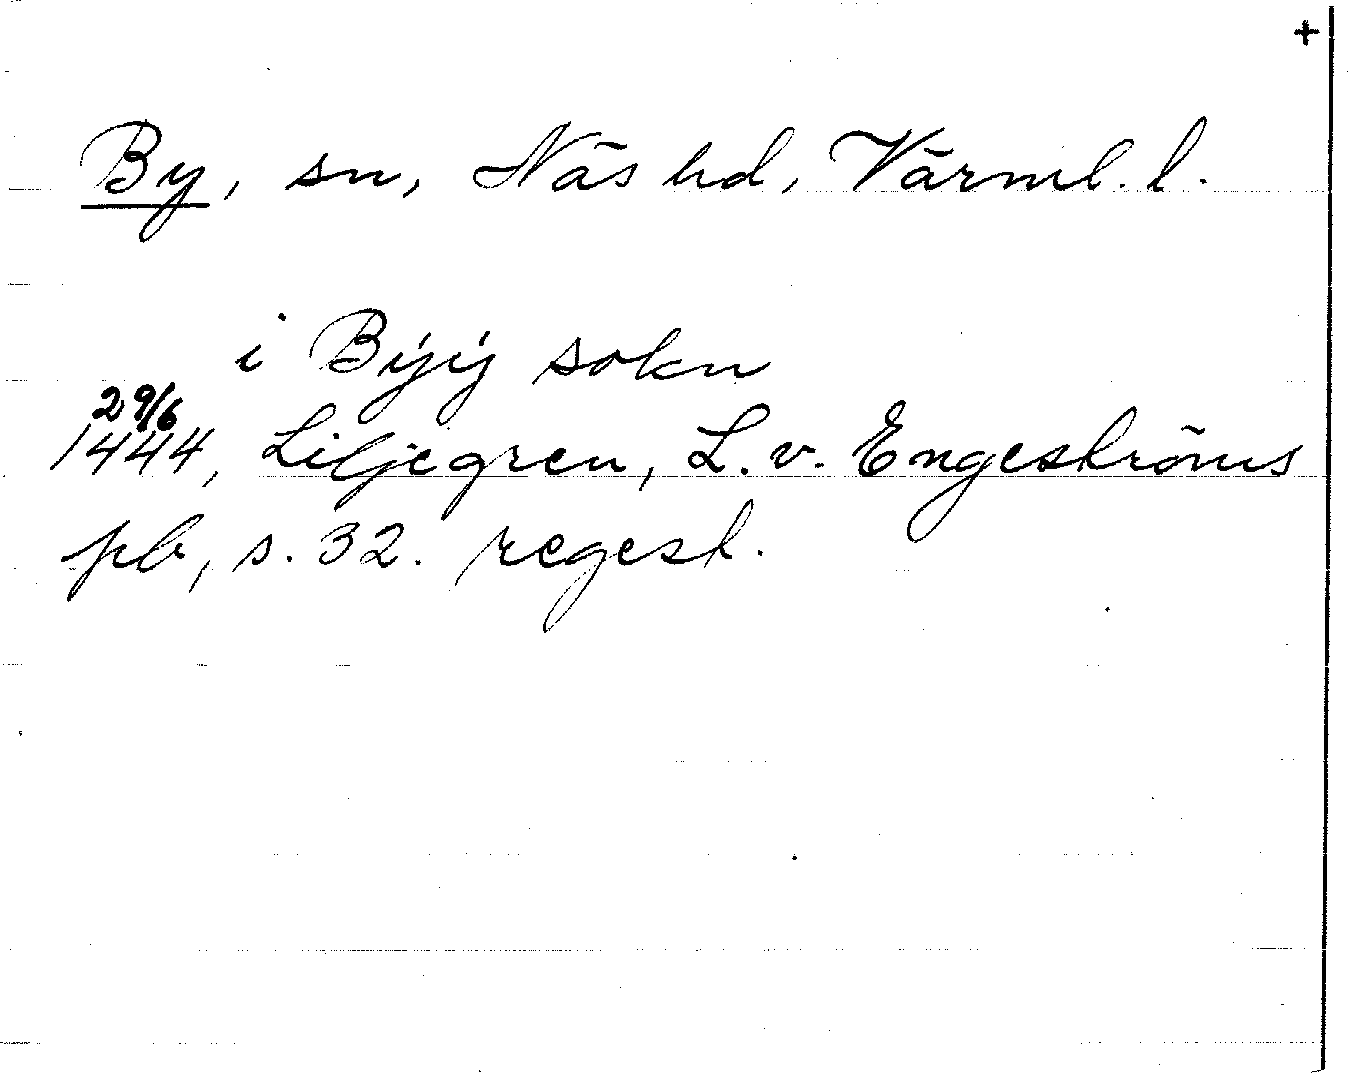 +
By, sn, Näs hd, Värml. l.
i Bÿÿ sokn
29/6
1444, Liljegren, L. v. Engeströms
pb, s. 32. regest.